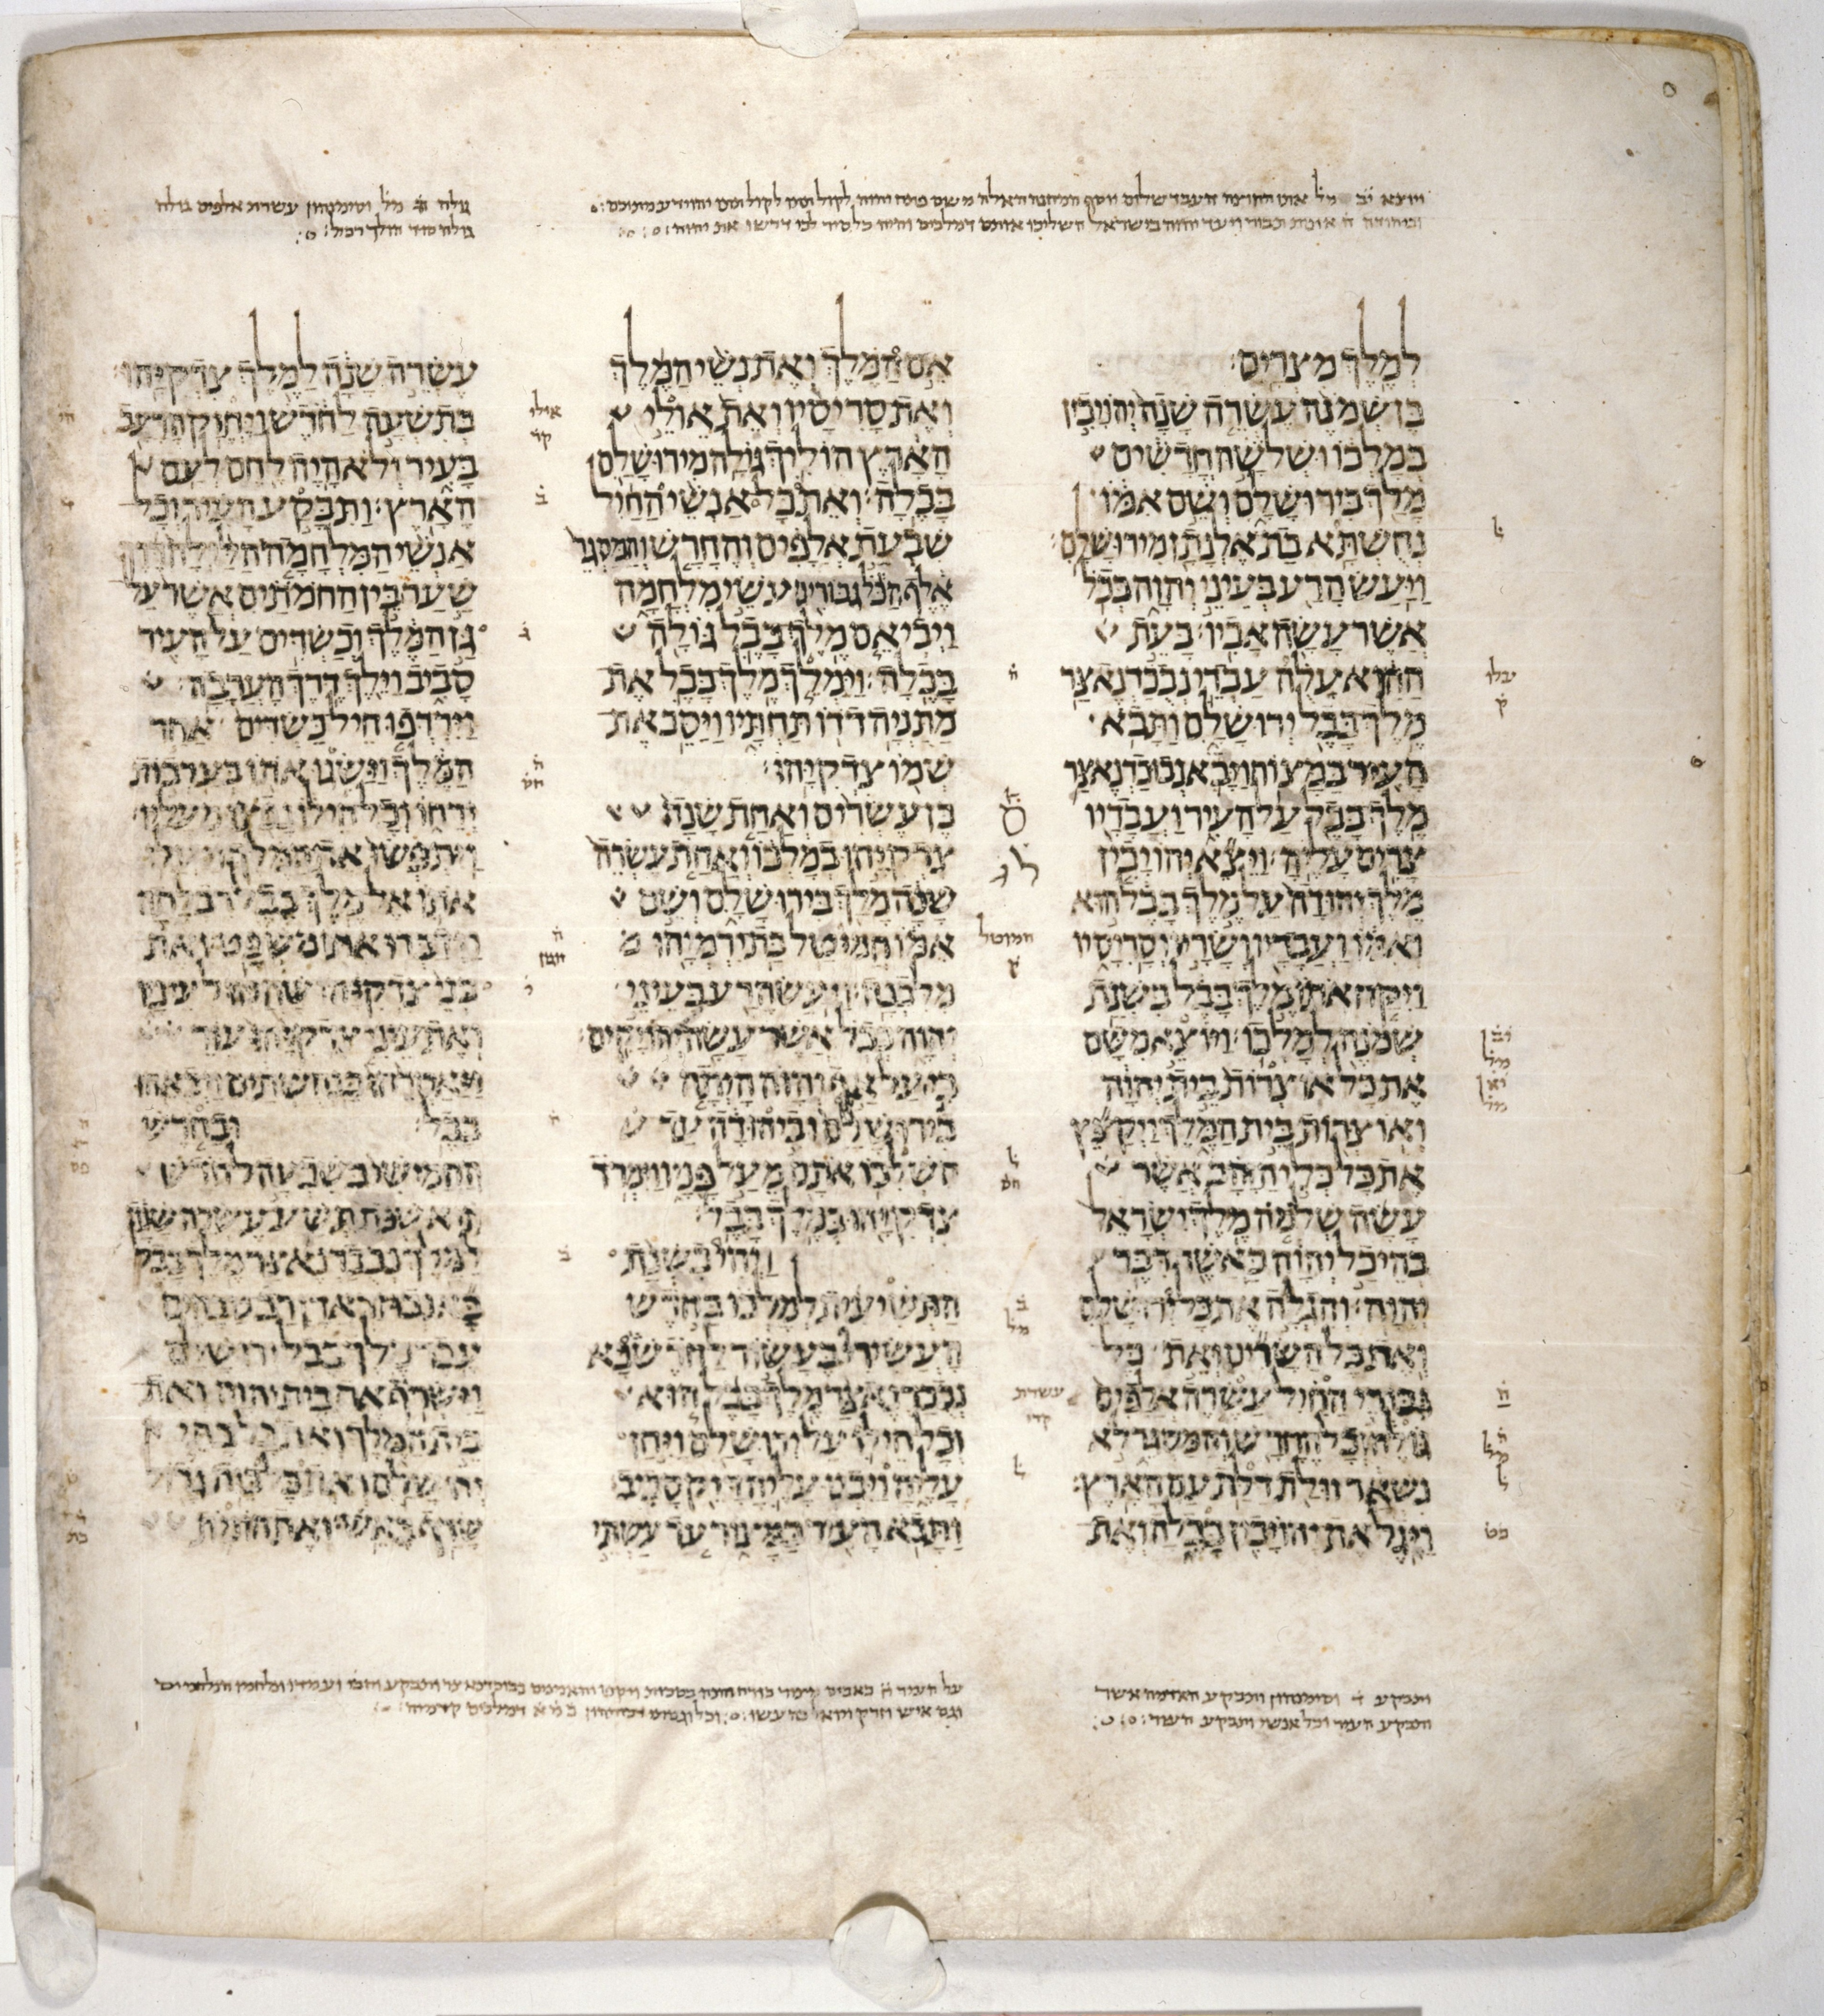 גולה מל וסימנהון עשרת אלפים גולה
למלך מצרים׃
בן שמנה עשרה שנה יהויכין
במלכו ושלשה חדשים
מלך בירושלם ושם אמו
נחשתא בת אלנתן מירושלם׃
ויעש הרע בעיני יהוה ככל
אשר עשה אביו׃ בעת
ההיא עלה עבדי נבכדנאצר
מלך בבל ירושלם ותבא
העיר במצור׃ ויבא נבוכדנאצר
מלך בבל על העיר ועבדיו
צרים עליה׃ ויצא יהויכין
מלך יהודה על מלך בבל הוא
ואמו ועבדיו ושריו וסריסיו
ויקח אתו מלך בבל בשנת
שמנה למלכו׃ ויוצא משם
את כל אוצרות בית יהוה
ואוצרות בית המלך ויקצץ
את כל כלי הזהב אשר
עשה שלמה מלך ישראל
בהיכל יהוה כאשר דבר
יהוה׃ והגלה את כל ירושלם
ואת כל השרים ואת כל
גבורי החיל עשרה אלפים
גולה וכל החרש והמסגר לא
נשאר זולת דלת עם הארץ׃
ויגל את יהויכין בבלה ואת
אם המלך ואת נשי המלך
ואת סריסיו ואת אולי
הארץ הוליך גולה מירושלם
בבלה׃ ואת כל אנשי החיל
שבעת אלפים והחרש והמסגר
אלף הכל גבורים עשי מלחמה
ויביאם מלך בבל גולה
בבלה׃ וימלך מלך בבל את
מתניה דדו תחתיו ויסב את
שמו צדקיהו׃
בן עשרים ואחת שנה
צדקיהו במלכו ואחת עשרה
שנה מלך בירושלם ושם
אמו חמיטל בת ירמיהו
מלבנה׃ ויעש הרע בעיני
יהוה ככל אשר עשה יהויקים׃
כי על אף יהוה היתה
בירושלם וביהודה עד
השלכו אתם מעל פניו וימרד
צדקיהו במלך בבל׃
ויהי בשנת
התשיעית למלכו בחדש
העשירי בעשור לחדש בא
נבכדנאצר מלך בבל הוא
וכל חילו על ירושלם ויחן
עליה ויבנו עליה דיק סביב׃
ותבא העיר במצור עד עשתי
עשרה שנה למלך צדקיהו׃
בתשעה לחדש ויחזק הרעב
בעיר ולא היה לחם לעם
הארץ׃ ותבקע העיר וכל
אנשי המלחמה הלילה דרך
שער בין החמתים אשר על
גן המלך וכשדים על העיר
סביב וילך דרך הערבה׃
וירדפו חיל כשדים אחר
המלך וישגו אתו בערבות
ירחו וכל חילו נפצו מעליו׃
ויתפשו את המלך ויעלו
אתו אל מלך בבל רבלתה
וידברו אתו משפט׃ ואת
בני צדקיהו שחטו לעיניו
ואת עיני צדקיהו עור
ויאסרהו בנחשתים ויבאהו
בבל׃ ובחדש
החמישי בשבעה לחדש
היא שנת תשע עשרה שנה
למלך נבכדנאצר מלך בבל
בא נבוזראדן רב טבחים
עבד מלך בבל ירושלם׃
וישרף את בית יהוה ואת
בית המלך ואת כל בתי
ירושלם ואת כל בית גדול
שרף באש׃ ואת חומת
ותבקע וסימנהון ותבקע האדמה אשר
ותבקע העיר וכל אנשי ותבקע העיר